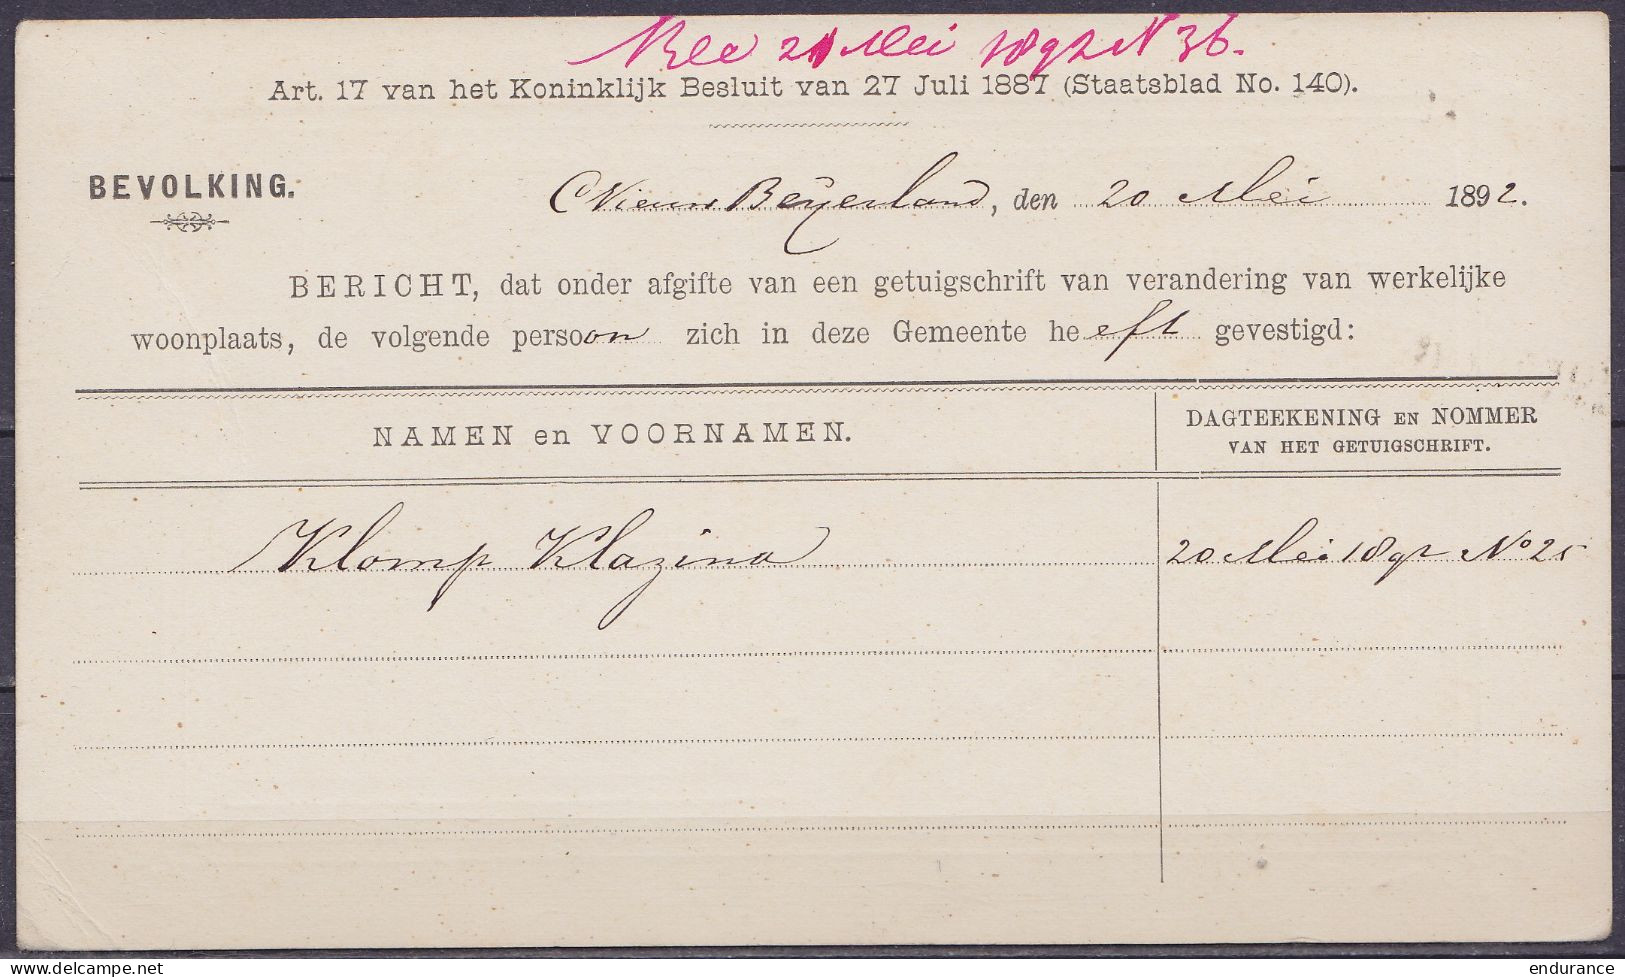 21 Mei 1892 N 36.
Art. 17 van het Koninklijk Besluit van 27 Juli 1887 (Staatsblad No. 140).
BEVOLKING.
Nieuw Beyerland, den 20 Mei 1892.
BERICHT, dat onder afgifte van een getuigschrift van verandering van werkelijke
woonplaats, de volgende persoon zich in deze Gemeente heeft gevestigd:
NAMEN en VOORNAMEN.
DAGTEEKENING EN NOMMER
VAN HET GETUIGSCHRIFT.
Klomp Klazina
20 Mei 1892 No 25
delcampe.net
endurance